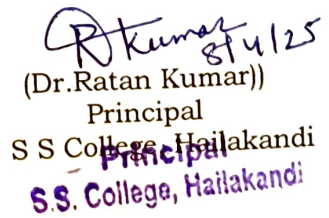 R Kumar
8/4/25
(Dr.Ratan Kumar))
Principal
S S College, Hailakandi
Principal
S.S. College, Hailakandi